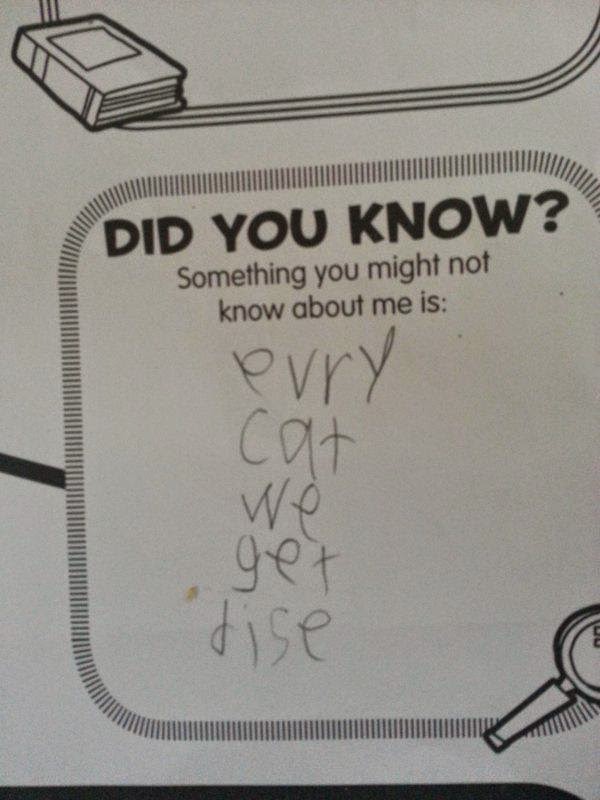 DID YOU KNOW?
Something you might not
know about me is:
evry
cat
we
get
dise